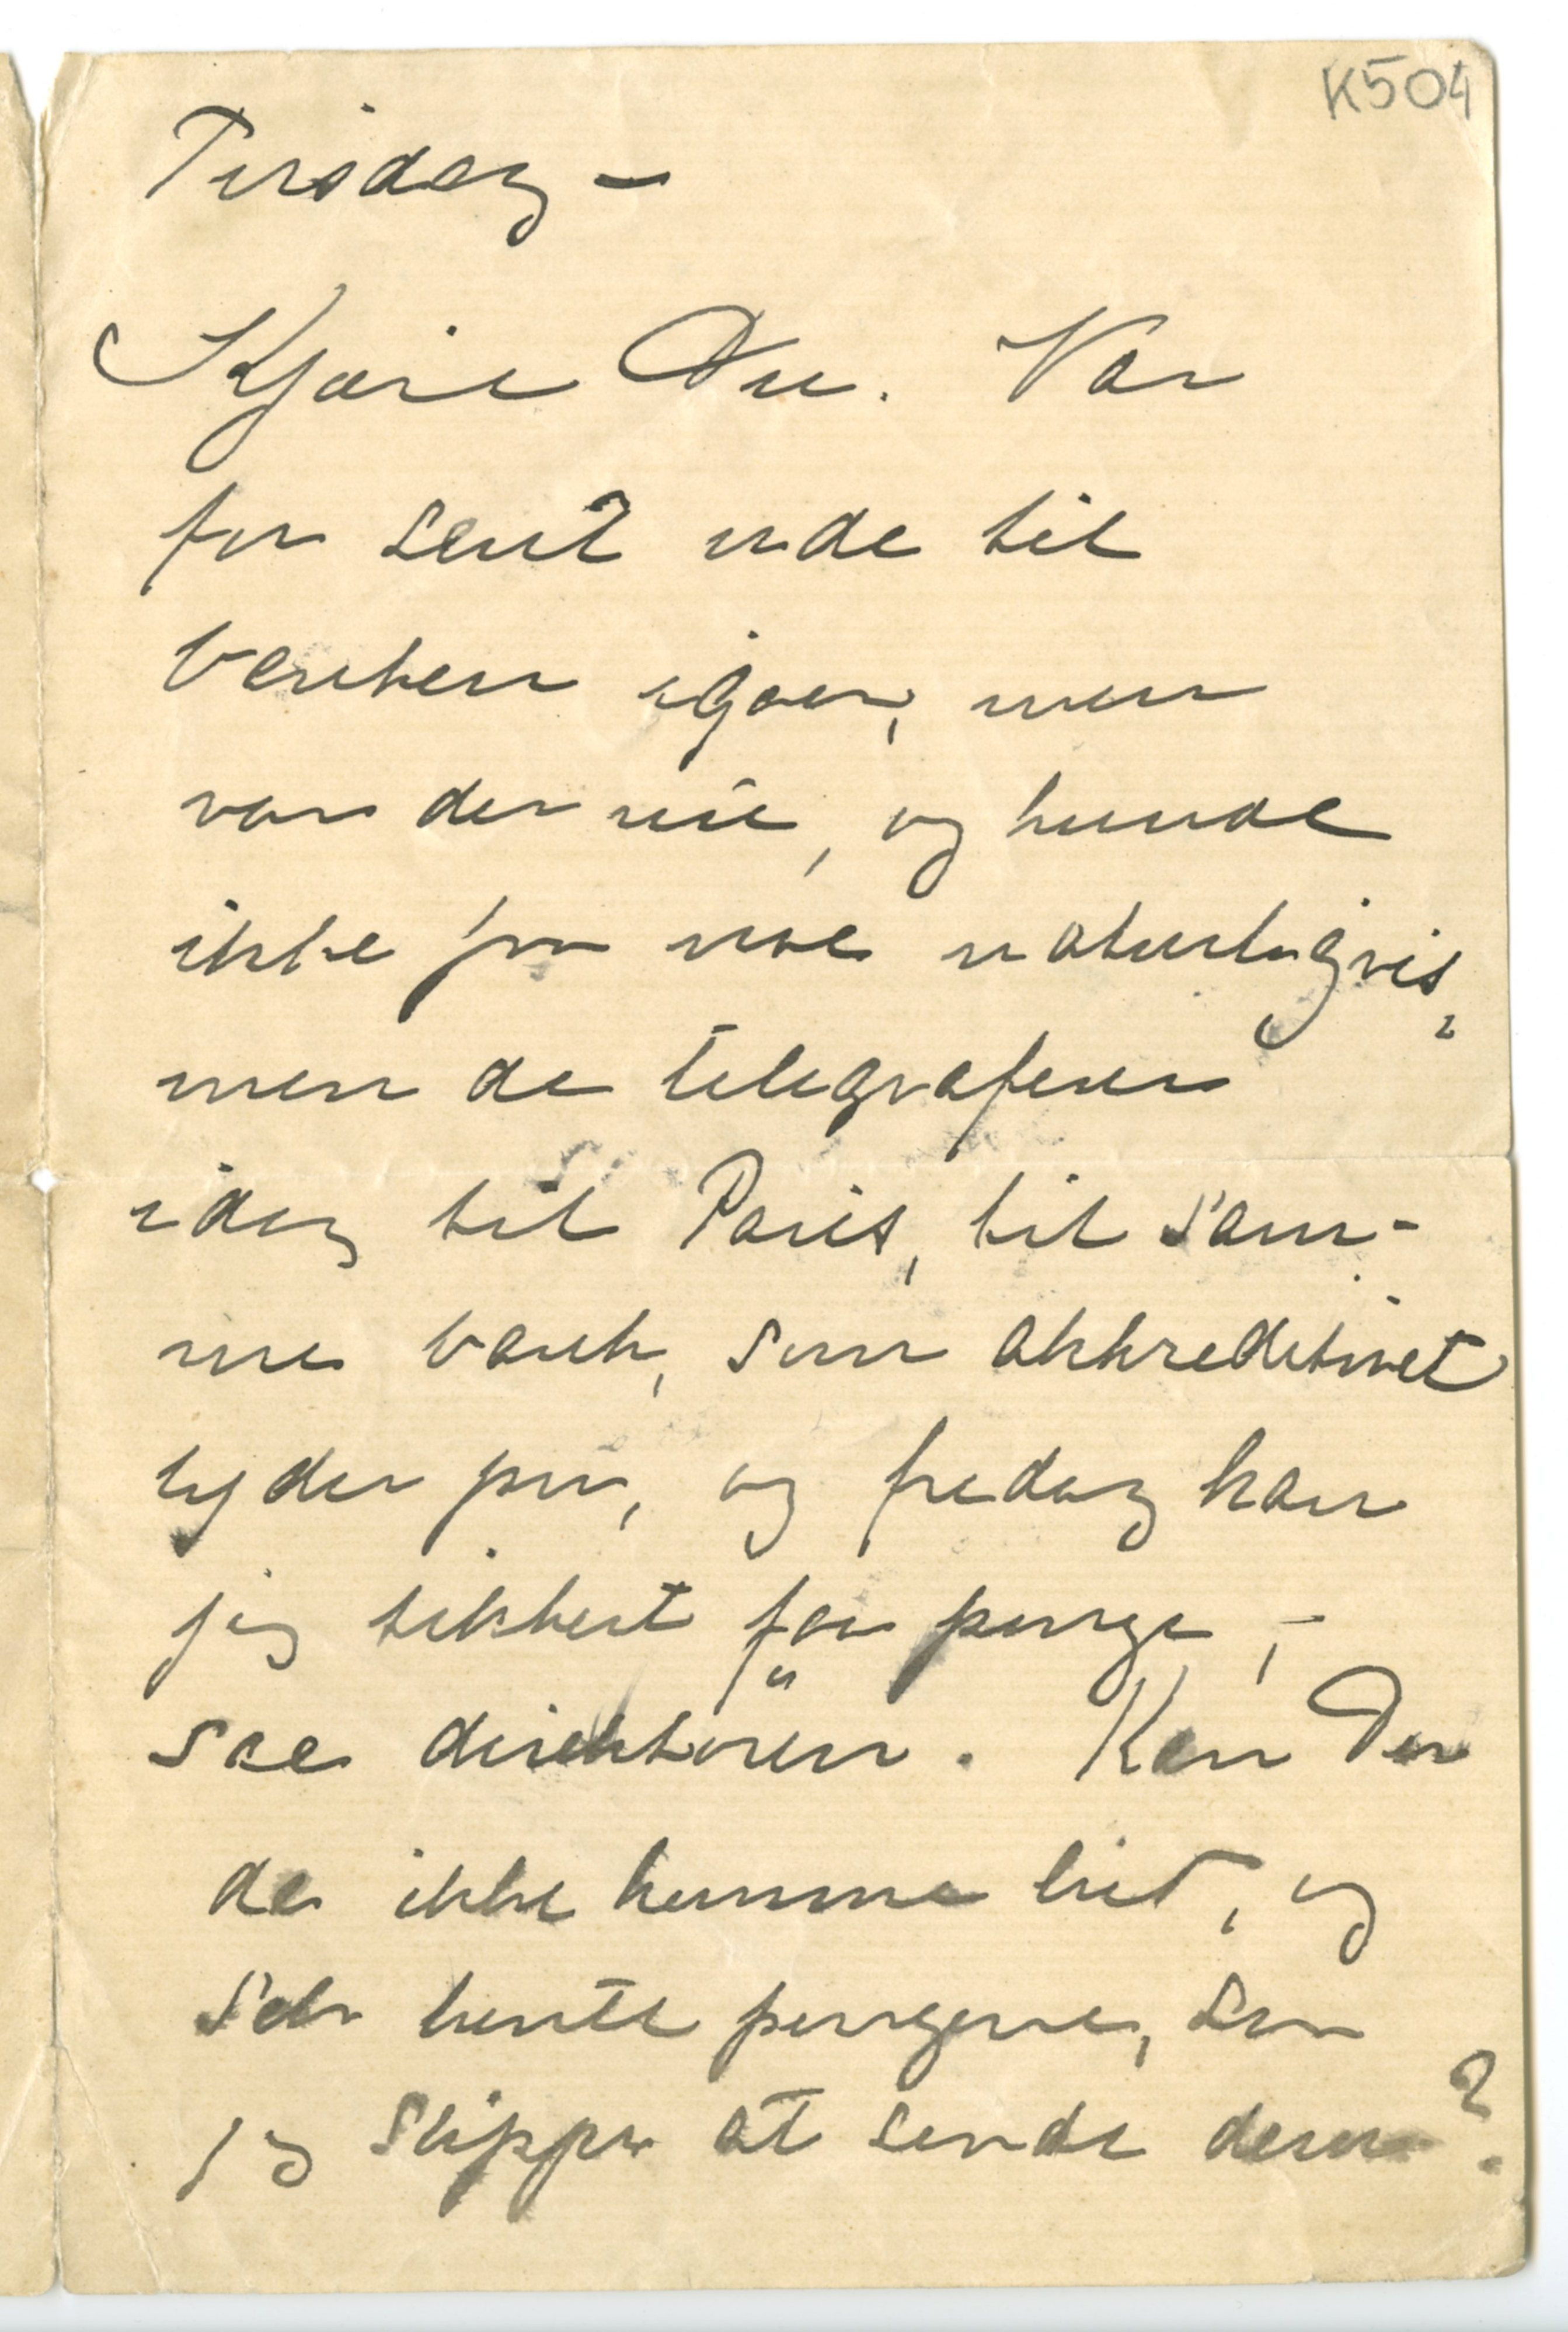 K504
Tirsdag –
Kjære Du. Var
for sent ude til
banken igaar, men
var der nu, og kunde
ikke faa noe naturligvis,
men de telegraferer
idag til Paris, til sam-
me bank, som akkreditivet
lyder paa, og fredag kan
jeg sikkert faa penge, –
sae direktören. Kan Du
da ikke komme hit, og
selv hente pengene, saa
jeg slipper at sende dem?